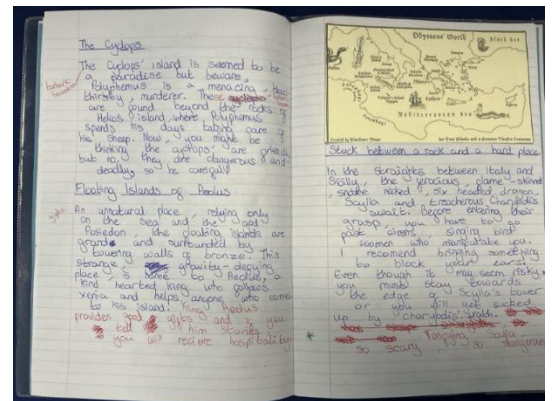 The Cyclops
The Cyclops' island is seemed to be
a paradise but beware,
Polyphemus is a menacing,
thirsty, murderer. These
are found beyond the rocks of
Helios island, where Polyphamus
spends his days taking care of
his sheep. Now, you might be
thinking the cyclops' are friendly
but no, they are dangerous and
deadly, so be careful!
Floating Islands of Aeolus
An unnatural place, relying only
on the sea and the god
Posiedon, the floating islands are
grand and surrounded by
towering walls of bronze. This
strange, gravity-defying
place, is home to Aeolus, a
kind hearted king who follows
xenia and helps anyone who comes
to his island. King Aeolus
provides good gifts and if you
tell him stories
you will recieve hospitality
Odysseus' World
Black Sea
Mediterranean Sea
Stuck between a rock and a hard place
In the straights between Italy and
Sicily, the ferocious, flame-skinned
, snake necked, six headed dragon,
Scylla and treacherous Charybdis
await. Before entering their
grasp, you have to go
past sirens, singing bird
women who manipulate you.
I recomend bringing something
to block your ears!
Even though it may seem risky,
you must stay towards
the edge of Scylla's bower
or you will get sucked
up by charybdis' wrath.
Terrifying Scylla
so scary, so dangerous